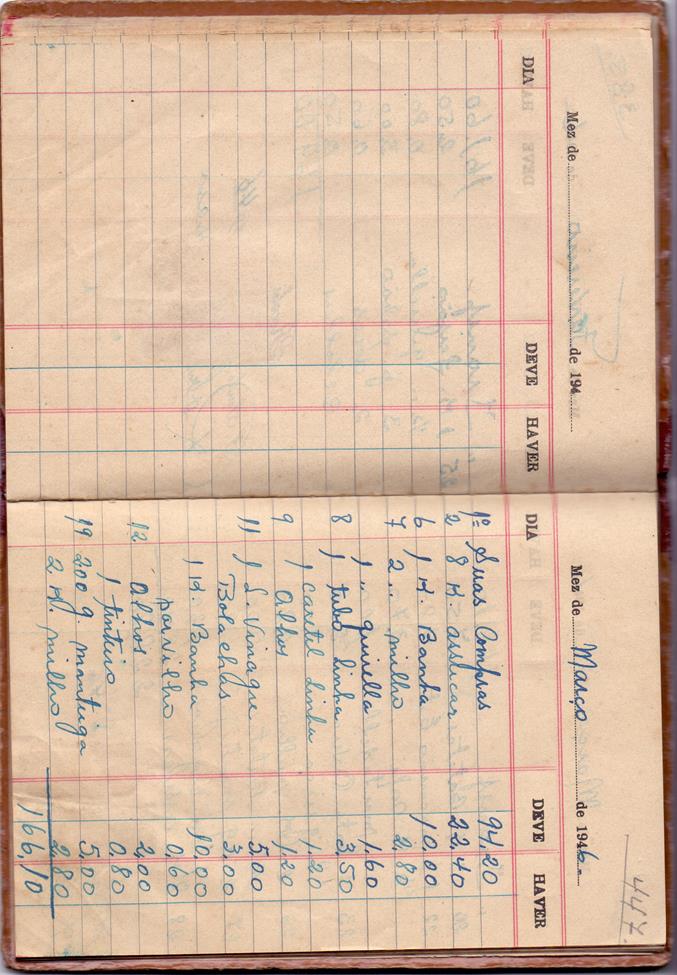 Mez de de 194
DIA DEVE HAVER
447
Mez de Março de 1946
DIA DEVE HAVER
1º Suas Compras 94,20
2 8 K. assucar 22,40
6 1 K. Banha 10,00
7 2 .. milho 2,80
1 .. quirella 1,60
8 1 tubo linha 3,50
1 cartel linha 1,20
9 1 Alhos 1,20
11 1 L. Vinagre 5,00
Bolachas 3,00
1 K. Banha 10,00
porvilho 0,60
12 Alhos 2,00
1 tinteiro 0,80
19 200 g. mantiga 5,00
2 K. milho 2,80
166,10